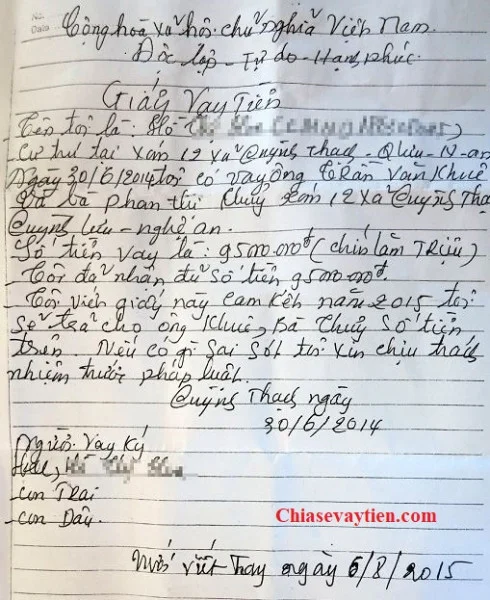 No.
Date
Cộng hoà xã hội chủ nghĩa Việt Nam.
Độc lập - Tự do - Hạnh phúc.
Giấy Vay Tiền
- Tên tôi là: Hồ
- Cư trú tại xóm 12 xã Quỳnh Thạch - Q lưu - N - an
Ngày 30/6/2014 tôi có vay ông Trần Văn Khuê
và bà phan thị thuỷ xóm 12 xã Quỳnh Thạ
Quỳnh lưu - nghệ an.
- Số tiền vay là: 95000.000đ (chín lăm Triệu)
- Tôi đã nhận đủ số tiền 95000.000đ.
- Tôi viết giấy này cam kết năm 2015 tôi
sẽ trả cho ông Khuê, Bà Thuỷ số tiền
trên. Nếu có gì sai sót tôi xin chịu trách
nhiệm trước pháp luật.
Quỳnh Thạch ngày
30/6/2014
Người Vay Ký
- con Trai
- con Dâu.
Chiasevaytien.com
viết thay ngày 6/8/2015